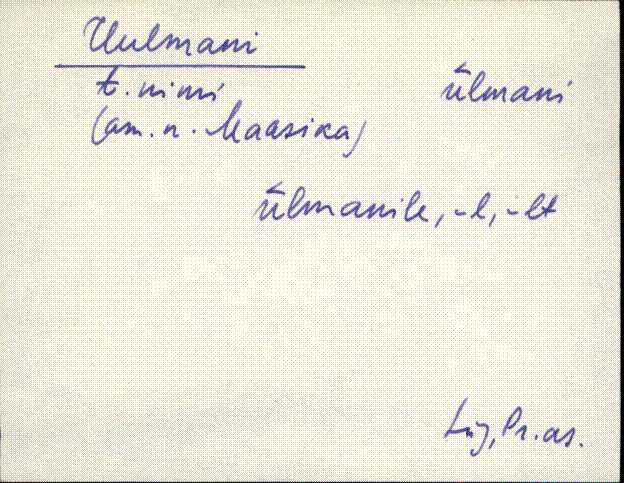 Uulmani
t. nimi
ūlmani
(am. n. Maasika)
ūlmanile, -l, -lt
Lüg, Pr. as.